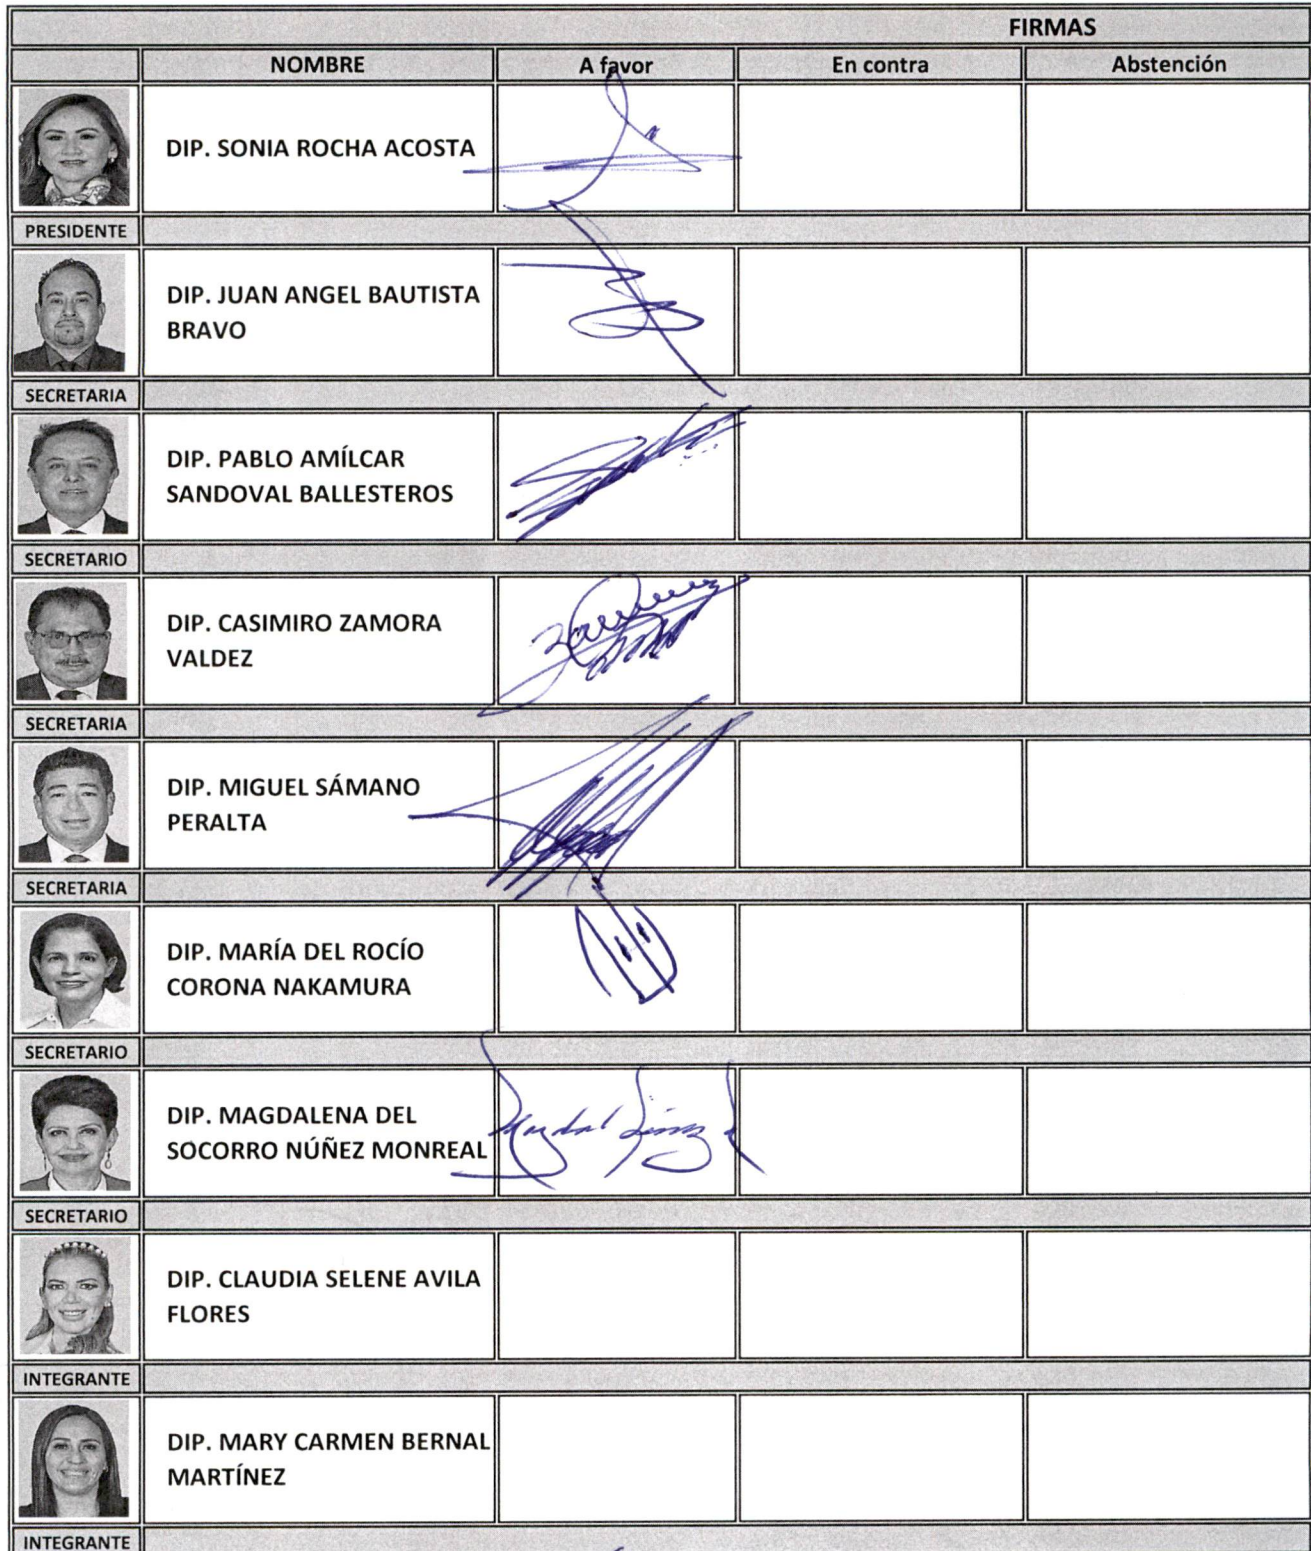 FIRMAS
NOMBRE A favor En contra Abstención
DIP. SONIA ROCHA ACOSTA
PRESIDENTE
DIP. JUAN ANGEL BAUTISTA
BRAVO
SECRETARIA
DIP. PABLO AMÍLCAR
SANDOVAL BALLESTEROS
SECRETARIO
DIP. CASIMIRO ZAMORA
VALDEZ
SECRETARIA
DIP. MIGUEL SÁMANO
PERALTA
SECRETARIA
DIP. MARÍA DEL ROCÍO
CORONA NAKAMURA
SECRETARIO
DIP. MAGDALENA DEL
SOCORRO NÚÑEZ MONREAL
SECRETARIO
DIP. CLAUDIA SELENE AVILA
FLORES
INTEGRANTE
DIP. MARY CARMEN BERNAL
MARTÍNEZ
INTEGRANTE